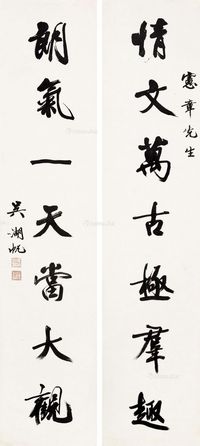 憲章先生
情文萬古極羣趣
朗氣一天當大觀
吳湖帆